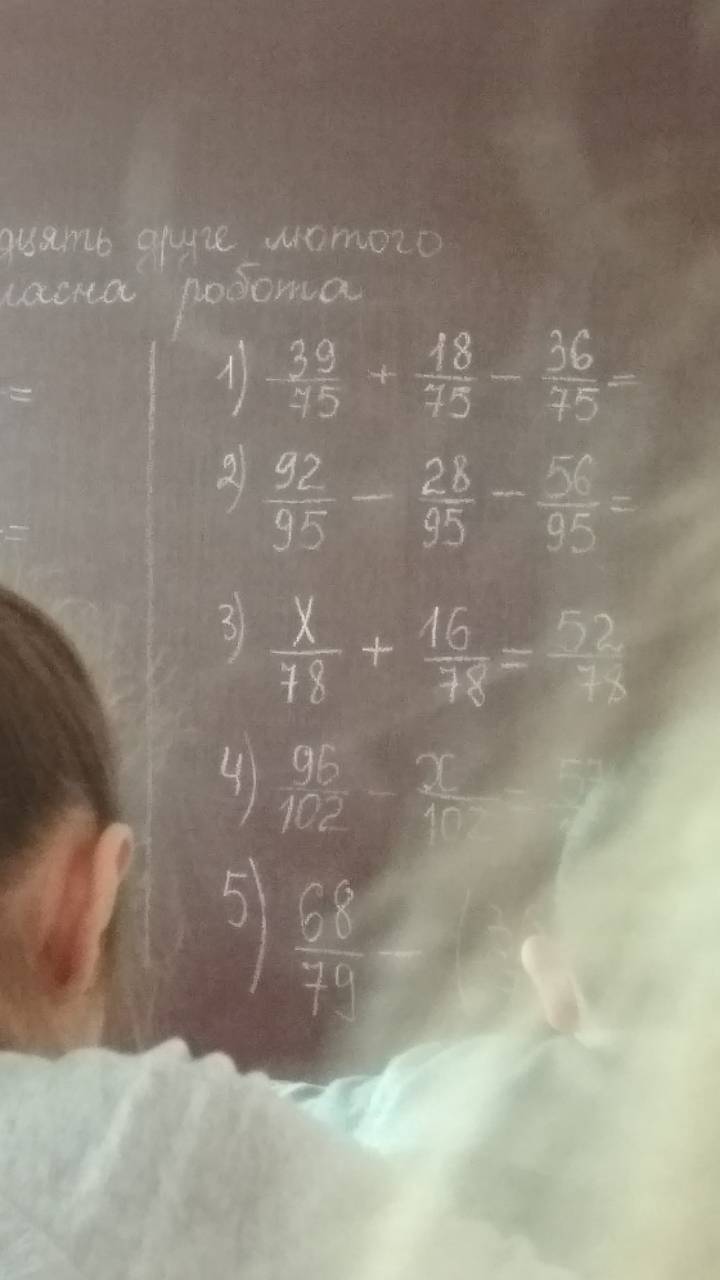 друге лютого
робота
=
=
1) 39/75 + 18/75 - 36/75 =
2) 92/95 - 28/95 - 56/95 =
3) X/78 + 16/78 = 52/78
4) 96/102 - x/102 =
5) 68/79 - (